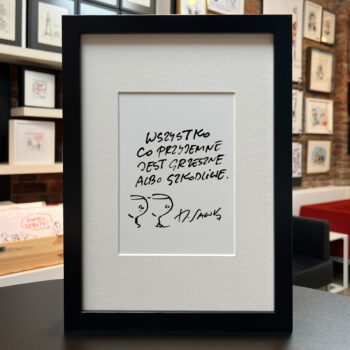 WSZYSTKO
CO PRZYJEMNE
JEST GRZESZNE
ALBO SZKODLIWE.